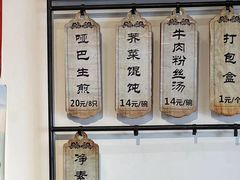 哑巴生煎
20元/8只
荠菜馄饨
14元/碗
牛肉粉丝汤
14元/碗
打包盒
1元/个
净素